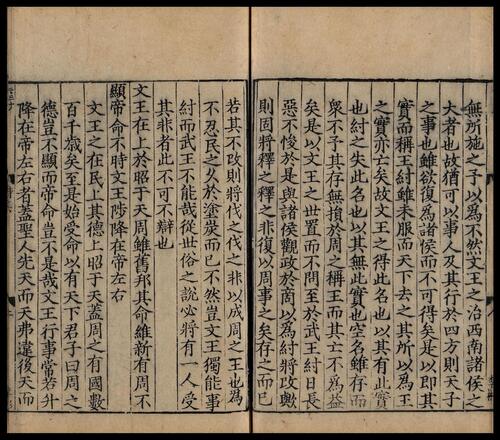 無所施之予以為不然文王之治西南諸侯之
大者也故猶可以事人及其行於四方則天子
之事也雖欲復為諸侯而不可得矣是以即其
實而稱王紂雖未服而天下去之其所以為王
之實亦亡矣故文王之得此名也以其有此實
也紂之失此名也以其無此實也空名雖存而
衆不予其存無損於周之稱王而其亡不為益
矣是以文王之世置而不問至於武王紂日長
惡不悛於是與諸侯觀政於商以為紂將改歟
則固將釋之釋之非復以周事之矣存之而已
若其不改則將伐之伐之非以成周之王也為
不忍民之久於塗炭而已不然豈文王獨能事
紂而武王不能哉從世俗之說必將有一人受
其非者此不可不辯也
文王在上於昭于天周雖舊邦其命維新有周不
顯帝命不時文王陟降在帝左右
文王之在民上其德上昭于天蓋周之有國數
百千歲矣至是始受命以有天下君子曰周之
德豈不顯而帝命豈不是哉文王行事常若升
降在帝左右者蓋聖人先天而天弗違後天而